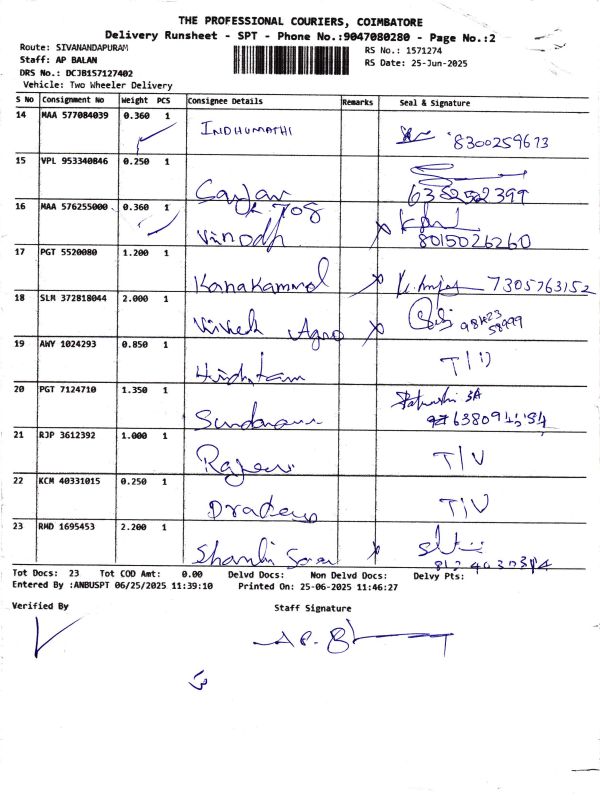 THE PROFESSIONAL COURIERS, COIMBATORE
Delivery Runsheet - SPT - Phone No.:9047080280 - Page No.:2
Route: SIVANANDAPURAM
RS No.: 1571274
Staff: AP BALAN
RS Date: 25-Jun-2025
DRS No.: DCJB157127402
Vehicle: Two Wheeler Delivery
S No Consignment No Weight PCS Consignee Details Remarks Seal & Signature
14 MAA 577084039 0.360 1 INDHUMATHI 8300259673
15 VPL 953340846 0.250 1 6382502399
16 MAA 576255000 0.360 1 Vinodh 8015026260
17 PGT 5520080 1.200 1 Kanakammal 7305763152
18 SLM 372818044 2.000 1 Vivek Agro
19 AWY 1024293 0.850 1
20 PGT 7124710 1.350 1
21 RJP 3612392 1.000 1 Rajeev
22 KCM 40331015 0.250 1
23 RMD 1695453 2.200 1
Tot Docs: 23 Tot COD Amt: 0.00 Delvd Docs: Non Delvd Docs: Delvy Pts:
Entered By :ANBUSPT 06/25/2025 11:39:10 Printed On: 25-06-2025 11:46:27
Verified By Staff Signature